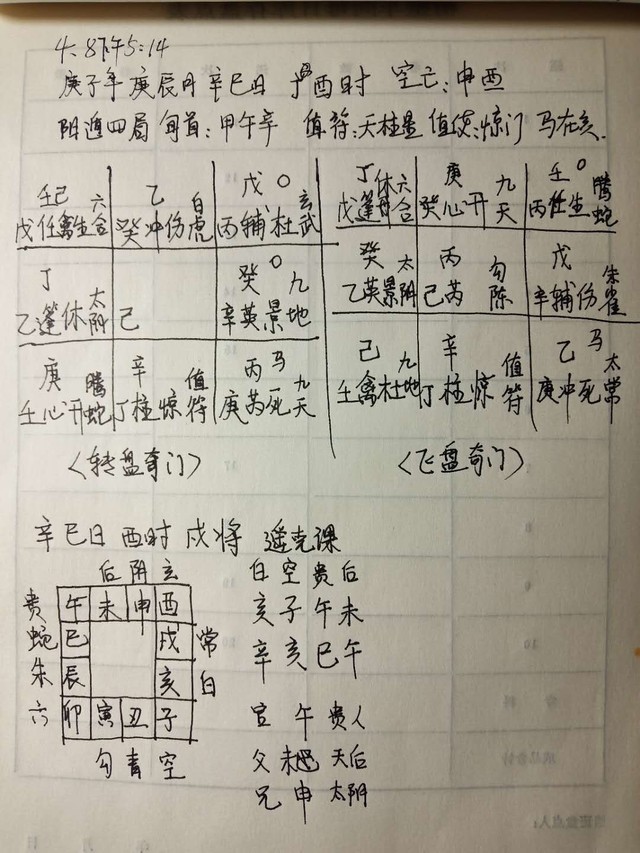 4.8下午5:14
庚子年 庚辰月 辛巳日 丁酉时 空亡:申酉
阴遁四局 旬首:甲午辛 值符:天柱星 值使:惊门 马在亥.
壬己 六 乙 白 戊 〇 玄
戊任禽生合 癸冲伤虎 丙辅杜武
丁 太 癸 〇 九
乙蓬休阴 己 辛英景地
庚 腾 辛 值 丙马 九
壬心开蛇 丁柱惊符 庚芮死天
〈转盘奇门〉
丁休六 庚 九 壬 〇 腾
戊蓬合 癸心开天 丙任生蛇
癸 太 丙 勾 戊 朱
乙英景阴 己芮 陈 辛辅伤雀
己 九 辛 值 乙马 太
壬禽杜地 丁柱惊符 庚冲死常
〈飞盘奇门〉
辛巳日 酉时 戌将 遥克课
后 阴 玄
贵 午 未 申 酉
蛇 巳 戌 常
朱 辰 亥 白
六 卯 寅 丑 子
勾 青 空
白 空 贵 后
亥 子 午 未
辛 亥 巳 午
官 午 贵人
父 未 天后
兄 申 太阴